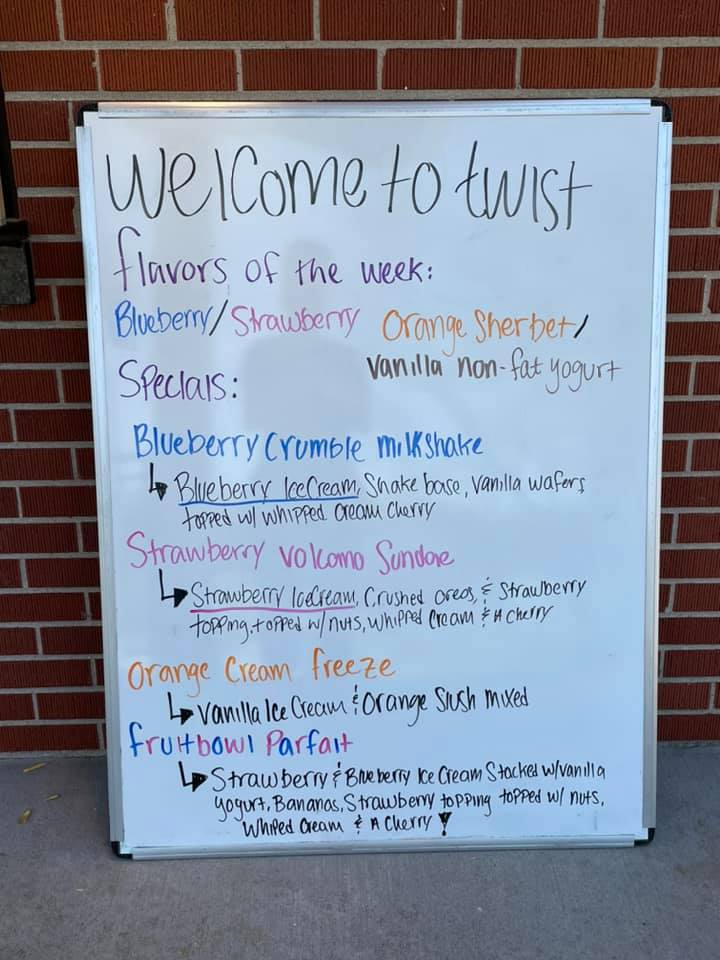 Welcome to twist
flavors of the week:
Blueberry/Strawberry Orange Sherbet/
Vanilla non-fat yogurt
Specials:
Blueberry Crumble milkshake
↳ Blueberry IceCream, Shake base, Vanilla wafers
topped w/ whipped cream cherry
Strawberry volcano Sundae
↳ Strawberry IceCream, Crushed oreos, & Strawberry
topping, topped w/ nuts, whipped cream & A cherry
Orange Cream freeze
↳ Vanilla Ice Cream & Orange Slush mixed
fruitbowl Parfait
↳ Strawberry & Blueberry Ice Cream Stacked w/vanilla
yogurt, Bananas, Strawberry topping topped w/ nuts,
Whiped Cream & A Cherry!